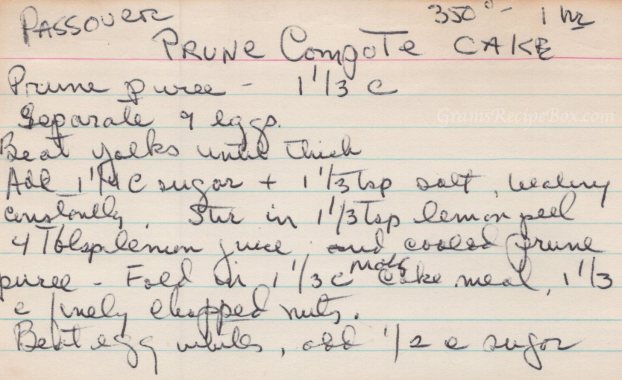 PASSOVER 350° - 1 hr
PRUNE COMPOTE CAKE
Prune puree - 1 1/3 C
GramsRecipeBox.com
Separate 9 eggs.
Beat yolks until thick
Add 1 1/4 C sugar + 1 1/3 tsp salt, beating
constantly. Stir in 1 1/3 tsp lemon peel
4 Tblsp lemon juice and cooled prune
puree - Fold in 1 1/3 c matz cake meal, 1 1/3
c finely chopped nuts.
Beat egg whites, add 1/2 c sugar